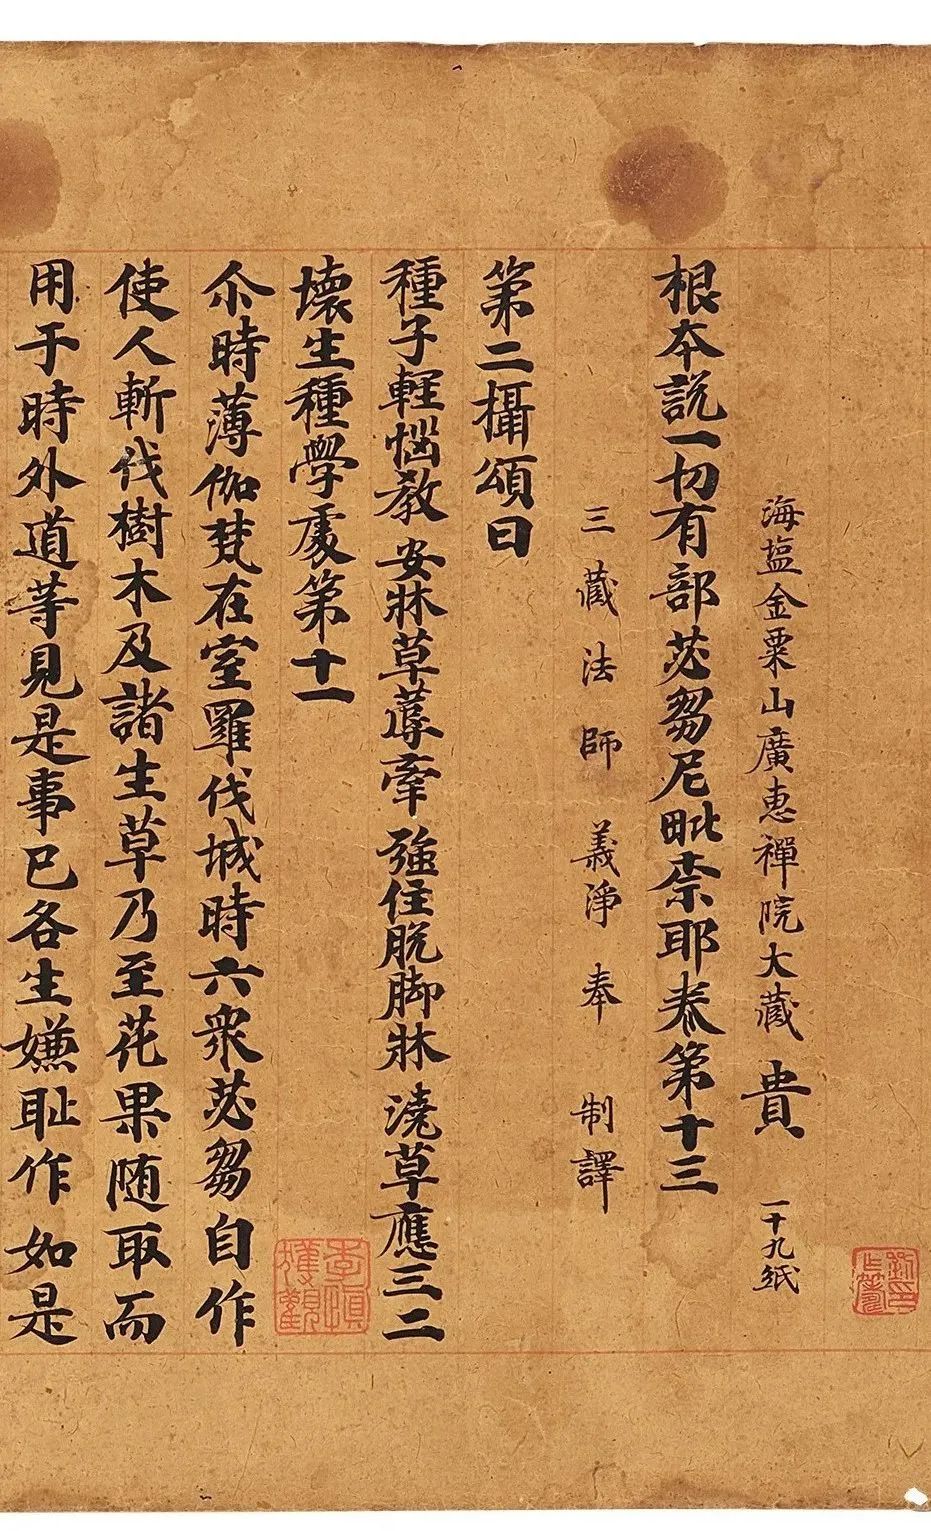 海塩金粟山廣惠禪院大藏 貴 一十九紙
根本說一切有部苾芻尼毗柰耶卷第十三
三藏法師義淨奉 制譯
第二攝頌曰
種子輕惱教 安牀草蓐牽 強住脫脚牀 澆草應三二
壞生種學處第十一
尒時薄伽梵在室羅伐城時六衆苾芻自作
使人斬伐樹木及諸生草乃至花果随取而
用于時外道等見是事已各生嫌耻作如是